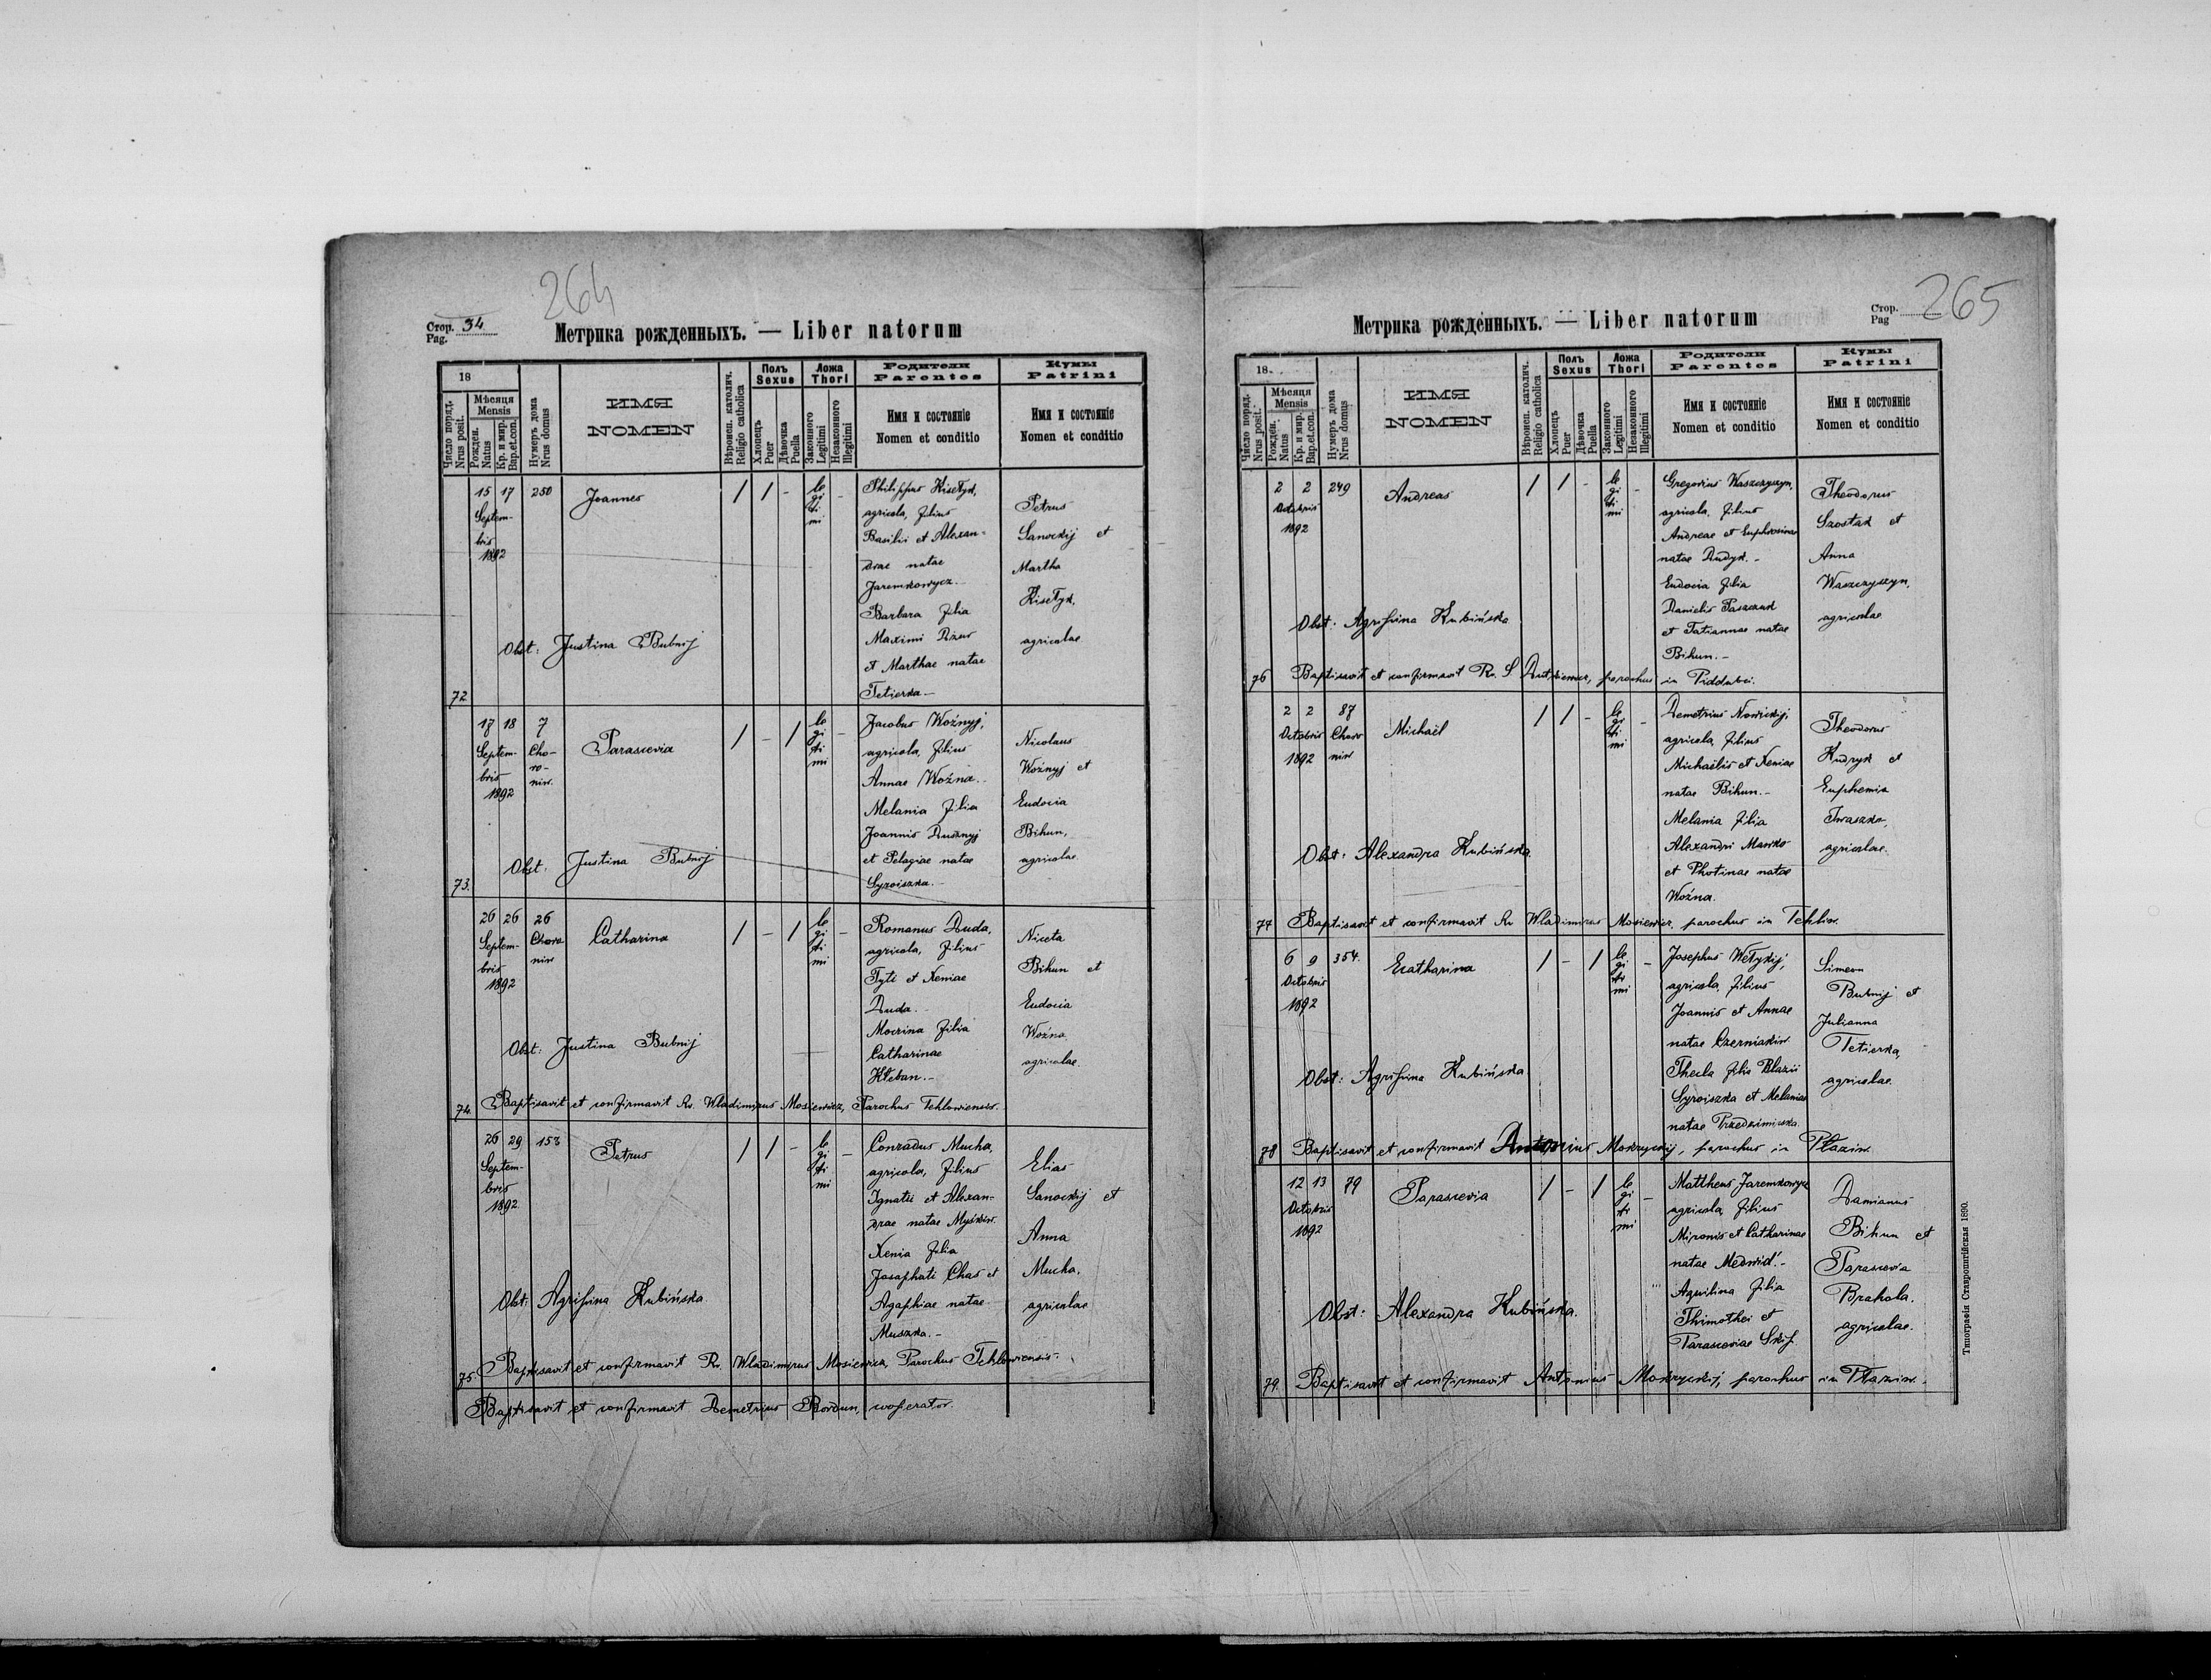 264
Стор. 34
Pag.
Метрика рожденныхъ. — Liber natorum
18
Число поряд.
Nrus posit.
Мѣсяця
Mensis
Рожден.
Natus
Кр. и мир.
Bap.et.con.
Нумеръ дома
Nrus domus
ИМЯ
NOMEN
Вѣроисп. католич.
Religio catholica
Полъ
Sexus
Хлопецъ
Puer
Дѣвочка
Puella
Ложа
Thori
Законного
Legitimi
Незаконного
Illegitimi
Родители
Parentes
Имя и состояніе
Nomen et conditio
Кумы
Patrini
Имя и состояніе
Nomen et conditio
15 17 250 Joannes / / - le
gi
ti
mi
-
Septem-
bris
1892
Philippus Kisełyk,
agricola, filius
Basilii et Alexan-
drae natae
Jaremkowycz.
Barbara filia
Maximi Dżus
et Marthae natae
Tetierka.-
Petrus
Sanockij et
Martha
Kisełyk,
agricolae
Obst: Justina Bubnij
72
17 18 7 Parascevia / - / le
gi
ti
mi
-
Septem-
bris
1892
Cho-
ro-
niw.
Jacobus Woźnyj,
agricola, filius
Annae Woźna.
Melania filia
Joannis Dusznyj
et Pelagiae natae
Syroiszka.-
Nicolaus
Woźnyj et
Eudocia
Bihun,
agricolae
Obst. Justina Bubnij
73.
26 26 26 Catharina / - / le
gi
ti
mi
-
Septem-
bris
1892
Choro
niw
Romanus Duda,
agricola, filius
Tyti et Xeniae
Duda.
Mocrina filia
Catharinae
Kłeban.-
Niceta
Bihun et
Eudocia
Woźna
agricolae
Obst: Justina Bubnij
74. Baptisavit et confirmavit Rv. Wladimirus Mosiewicz, Parochus Tehlowiensis.
26 29 153 Petrus / / - le
gi
ti
mi
-
Septem-
bris
1892
Conradus Mucha,
agricola, filius
Ignatii et Alexan-
drae natae Myśkiw.
Xenia filia
Josaphati Chas et
Agaphiae natae
Muszka.-
Elias
Sanockij et
Anna
Mucha,
agricolae
Obst: Agripina Kubińska
75. Baptisavit et confirmavit Rv. Wladimirus Mosiewicz, Parochus Tehlowiensis.
Baptisavit et confirmavit Demetrius Bordun, cooperator.
265
Стор.
Pag
Метрика рожденныхъ. — Liber natorum
18
Число поряд.
Nrus posit.
Мѣсяця
Mensis
Рожден.
Natus
Кр. и мир.
Bap.et.con.
Нумеръ дома
Nrus domus
ИМЯ
NOMEN
Вѣроисп. католич.
Religio catholica
Полъ
Sexus
Хлопецъ
Puer
Дѣвочка
Puella
Ложа
Thori
Законного
Legitimi
Незаконного
Illegitimi
Родители
Parentes
Имя и состояніе
Nomen et conditio
Кумы
Patrini
Имя и состояніе
Nomen et conditio
2 2 249 Andreas / / - le
gi
ti
mi
-
Octobris
1892
Gregorius Waszczyszyn,
agricola, filius
Andreae et Euphrosinae
natae Dudyk.-
Eudocia filia
Danielis Paszczuk
et Tatiannae natae
Bihun.-
Theodorus
Szostak et
Anna
Waszczyszyn,
agricolae
Obst: Agripina Kubińska
76 Baptisavit et confirmavit Rv. parochus in Piddubci.
2 2 87 Michaël / / - le
gi
ti
mi
-
Octobris
1892
Choro
niw
Demetrius Nowickij,
agricola, filius
Michaëlis et Xeniae
natae Bihun.-
Melania filia
Alexandri Mawko
et Photinae natae
Woźna.
Theodorus
Kudryk et
Euphemia
Iwaszko,
agricolae.
Obst: Alexandra Kubińska.
77 Baptisavit et confirmavit Rv Wladimirus Mosiewicz, parochus in Tehliw.
6 9 354. Ecatharina / - / le
gi
ti
mi
-
Octobris
1892
Josephus Wełykij,
agricola, filius
Joannis et Annae
natae Czerniakiw
Thecla filia Blazii
Syroiszka et Melaniae
natae Przedzimirska.
Simeon
Bubnij et
Julianna
Tetierka,
agricolae.
Obst: Agripina Kubińska
78 Baptisavit et confirmavit Antonius Mokrzyckij, parochus in Płaziw.
12 13 79 Parascevia / - / le
gi
ti
mi
-
Octobris
1892
Mattheus Jaremkowycz
agricola, filius
Mironis et Catharinae
natae Medwid'.-
Aquilina filia
Thimothei et
Parasceviae Skip.
Damianus
Bihun et
Parascevia
Brahola.
agricolae.
Obst: Alexandra Kubińska.
79. Baptisavit et confirmavit Antonius Mokrzyckij, parochus in Płaziw.
Типографія Ставропигійская 1890.